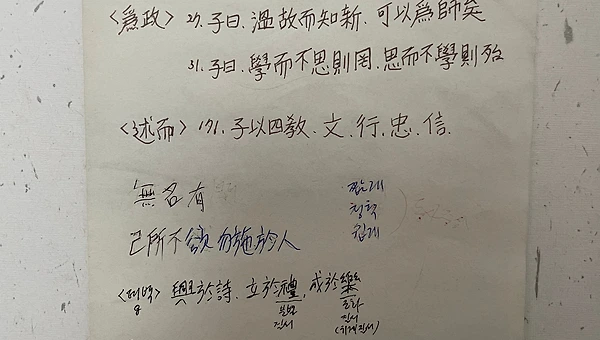 <爲政> 27. 子曰、溫故而知新、可以爲師矣
31. 子曰、學而不思則罔、思而不學則殆
<述而> 171. 子以四敎、文、行、忠、信、
無名有
己所不欲勿施於人
철학
<태백> 興於詩、立於禮、成於樂
질서
질서